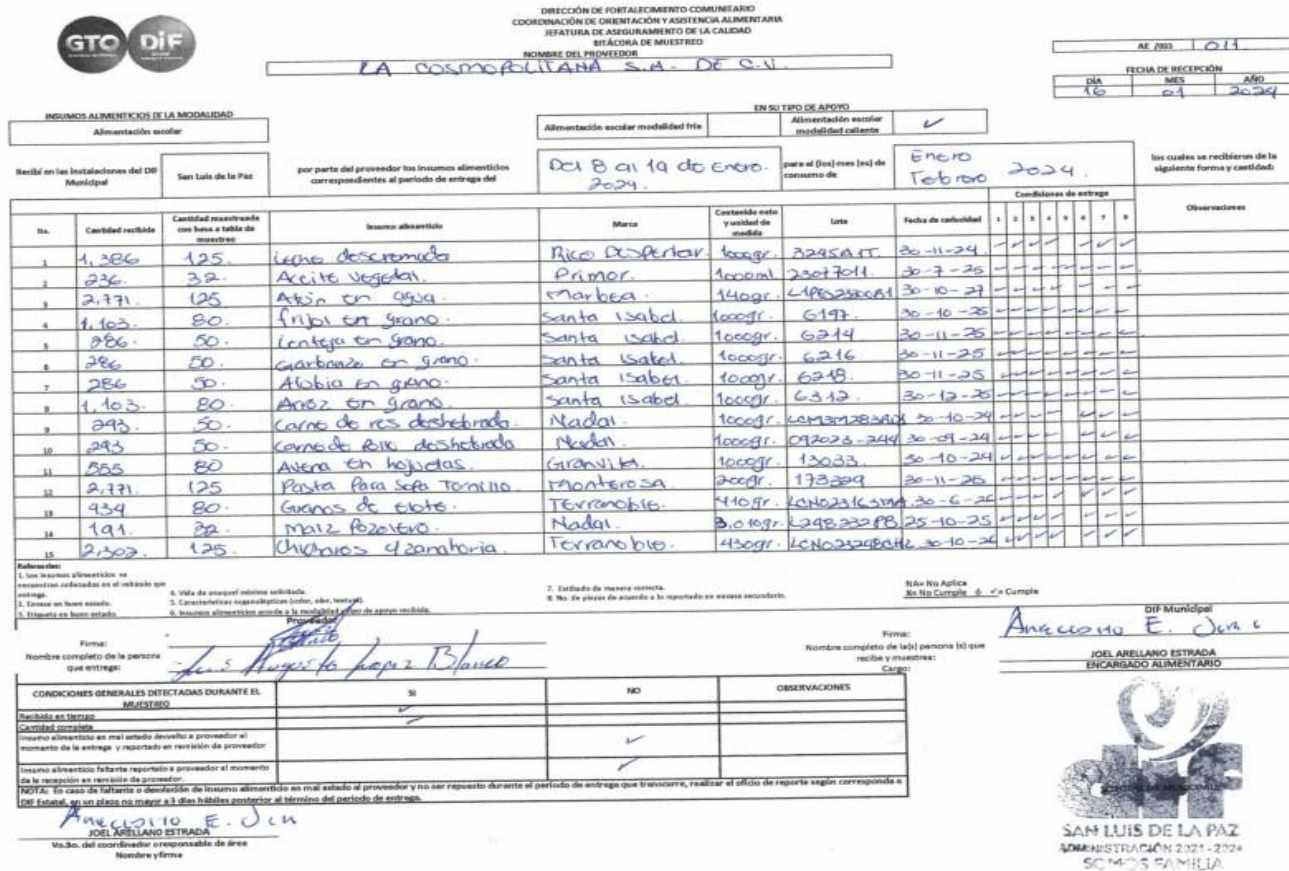 GTO DiF
DIRECCIÓN DE FORTALECIMIENTO COMUNITARIO
COORDINACIÓN DE ORIENTACIÓN Y ASISTENCIA ALIMENTARIA
JEFATURA DE ASEGURAMIENTO DE LA CALIDAD
BITÁCORA DE MUESTREO
NOMBRE DEL PROVEEDOR
LA COSMOPOLITANA S.A. DE C.V.
AE /033 011
FECHA DE RECEPCIÓN
DÍA MES AÑO
16 01 2024
INSUMOS ALIMENTICIOS DE LA MODALIDAD
Alimentación escolar
EN SU TIPO DE APOYO
Alimentación escolar modalidad fría
Alimentación escolar modalidad caliente ✓
Recibí en las instalaciones del DIF Municipal
San Luis de la Paz
por parte del proveedor los insumos alimenticios correspondientes al periodo de entrega del
Del 8 al 19 de Enero. 2024.
para el (los) mes (es) de consumo de
Enero Febrero 2024.
los cuales se recibieron de la siguiente forma y cantidad:
No. Cantidad recibida Cantidad muestreada con base a tabla de muestreo Insumo alimenticio Marca Contenido neto y unidad de medida Lote Fecha de caducidad Condiciones de entrega 1 2 3 4 5 6 7 8 Observaciones
1 1,386 125. Leche descremada Rico Despertar. 1000gr. 30-11-24 ✓ ✓ ✓ ✓ ✓ ✓ ✓
2 236. 32. Aceite Vegetal. Primor. 1000ml. 23077011. 30-7-25 ✓ ✓ ✓ ✓ ✓ ✓ ✓ ✓
3 2,771. 125 Atún en agua. Marbea. 140gr. 30-10-27 ✓ ✓ ✓ ✓ ✓ ✓ ✓ ✓
4 1,103. 80. frijol en grano. Santa Isabel. 1000gr. 6197. 30-10-25 ✓ ✓ ✓ ✓ ✓ ✓ ✓ ✓
5 286. 50. Lenteja en grano. Santa Isabel. 1000gr. 6214 30-11-25 ✓ ✓ ✓ ✓ ✓ ✓ ✓ ✓
6 286 50. Garbanzo en grano. Santa Isabel. 1000gr. 6216 30-11-25 ✓ ✓ ✓ ✓ ✓ ✓ ✓ ✓
7 286 50. Alubia en grano. Santa Isabel. 1000gr. 6218. 30-11-25 ✓ ✓ ✓ ✓ ✓ ✓ ✓ ✓
8 1,103. 80. Arroz en grano. Santa Isabel. 1000gr. 6312. 30-12-25 ✓ ✓ ✓ ✓ ✓ ✓ ✓ ✓
9 293. 50. Carne de res deshebrada. Nadal. 1000gr. 30-10-24 ✓ ✓ ✓ ✓ ✓ ✓ ✓
10 293 50. Carne de Pollo deshebrada Nadal. 1000gr. 092023-244 30-09-24 ✓ ✓ ✓ ✓ ✓ ✓ ✓
11 555 80 Avena en hojuelas. Granvita. 1000gr. 13033. 30-10-24 ✓ ✓ ✓ ✓ ✓ ✓ ✓ ✓
12 2,771. 125 Pasta Para Sopa Tornillo. Monterosa. 200gr. 173329 30-11-25 ✓ ✓ ✓ ✓ ✓ ✓ ✓ ✓
13 934 80. Granos de elote. Terranoble. 410gr. 30-6-26 ✓ ✓ ✓ ✓ ✓ ✓ ✓
14 191. 32. Maíz Pozolero. Nadal. 3.010gr. 25-10-25 ✓ ✓ ✓ ✓ ✓ ✓ ✓
15 2,302. 125. Chicharos y zanahoria. Terranoble. 430gr. 30-10-26 ✓ ✓ ✓ ✓ ✓ ✓ ✓
Referencias:
1. Los insumos alimenticios se encuentran ordenados en el vehículo que entrega.
2. Envase en buen estado.
3. Etiqueta en buen estado.
4. Vida de anaquel mínima solicitada.
5. Características organolépticas (color, olor, textura).
6. Insumos alimenticios acorde a la modalidad y tipo de apoyo recibida.
7. Estibado de manera correcta.
8. No. de piezas de acuerdo a lo reportado en envase secundario.
NA= No Aplica
X= No Cumple ó ✓= Cumple
Proveedor
Firma:
Nombre completo de la persona que entrega:
Luis Augusto Lopez Blanco
DIF Municipal
Firma:
Nombre completo de la(s) persona (s) que recibe y muestrea:
JOEL ARELLANO ESTRADA
Cargo:
ENCARGADO ALIMENTARIO
CONDICIONES GENERALES DETECTADAS DURANTE EL MUESTREO SI NO OBSERVACIONES
Recibido en tiempo ✓
Cantidad completa ✓
Insumo alimenticio en mal estado devuelto a proveedor al momento de la entrega y reportado en remisión de proveedor ✓
Insumo alimenticio faltante reportado a proveedor al momento de la recepción en remisión de proveedor. ✓
NOTA: En caso de faltante o devolución de insumo alimenticio en mal estado al proveedor y no ser repuesto durante el periodo de entrega que transcurre, realizar el oficio de reporte según corresponda a DIF Estatal, en un plazo no mayor a 3 días hábiles posterior al término del periodo de entrega.
JOEL ARELLANO ESTRADA
Vo.Bo. del coordinador o responsable de área
Nombre y firma
dif
SAN LUIS DE LA PAZ
ADMINISTRACIÓN 2021-2024
SOMOS FAMILIA